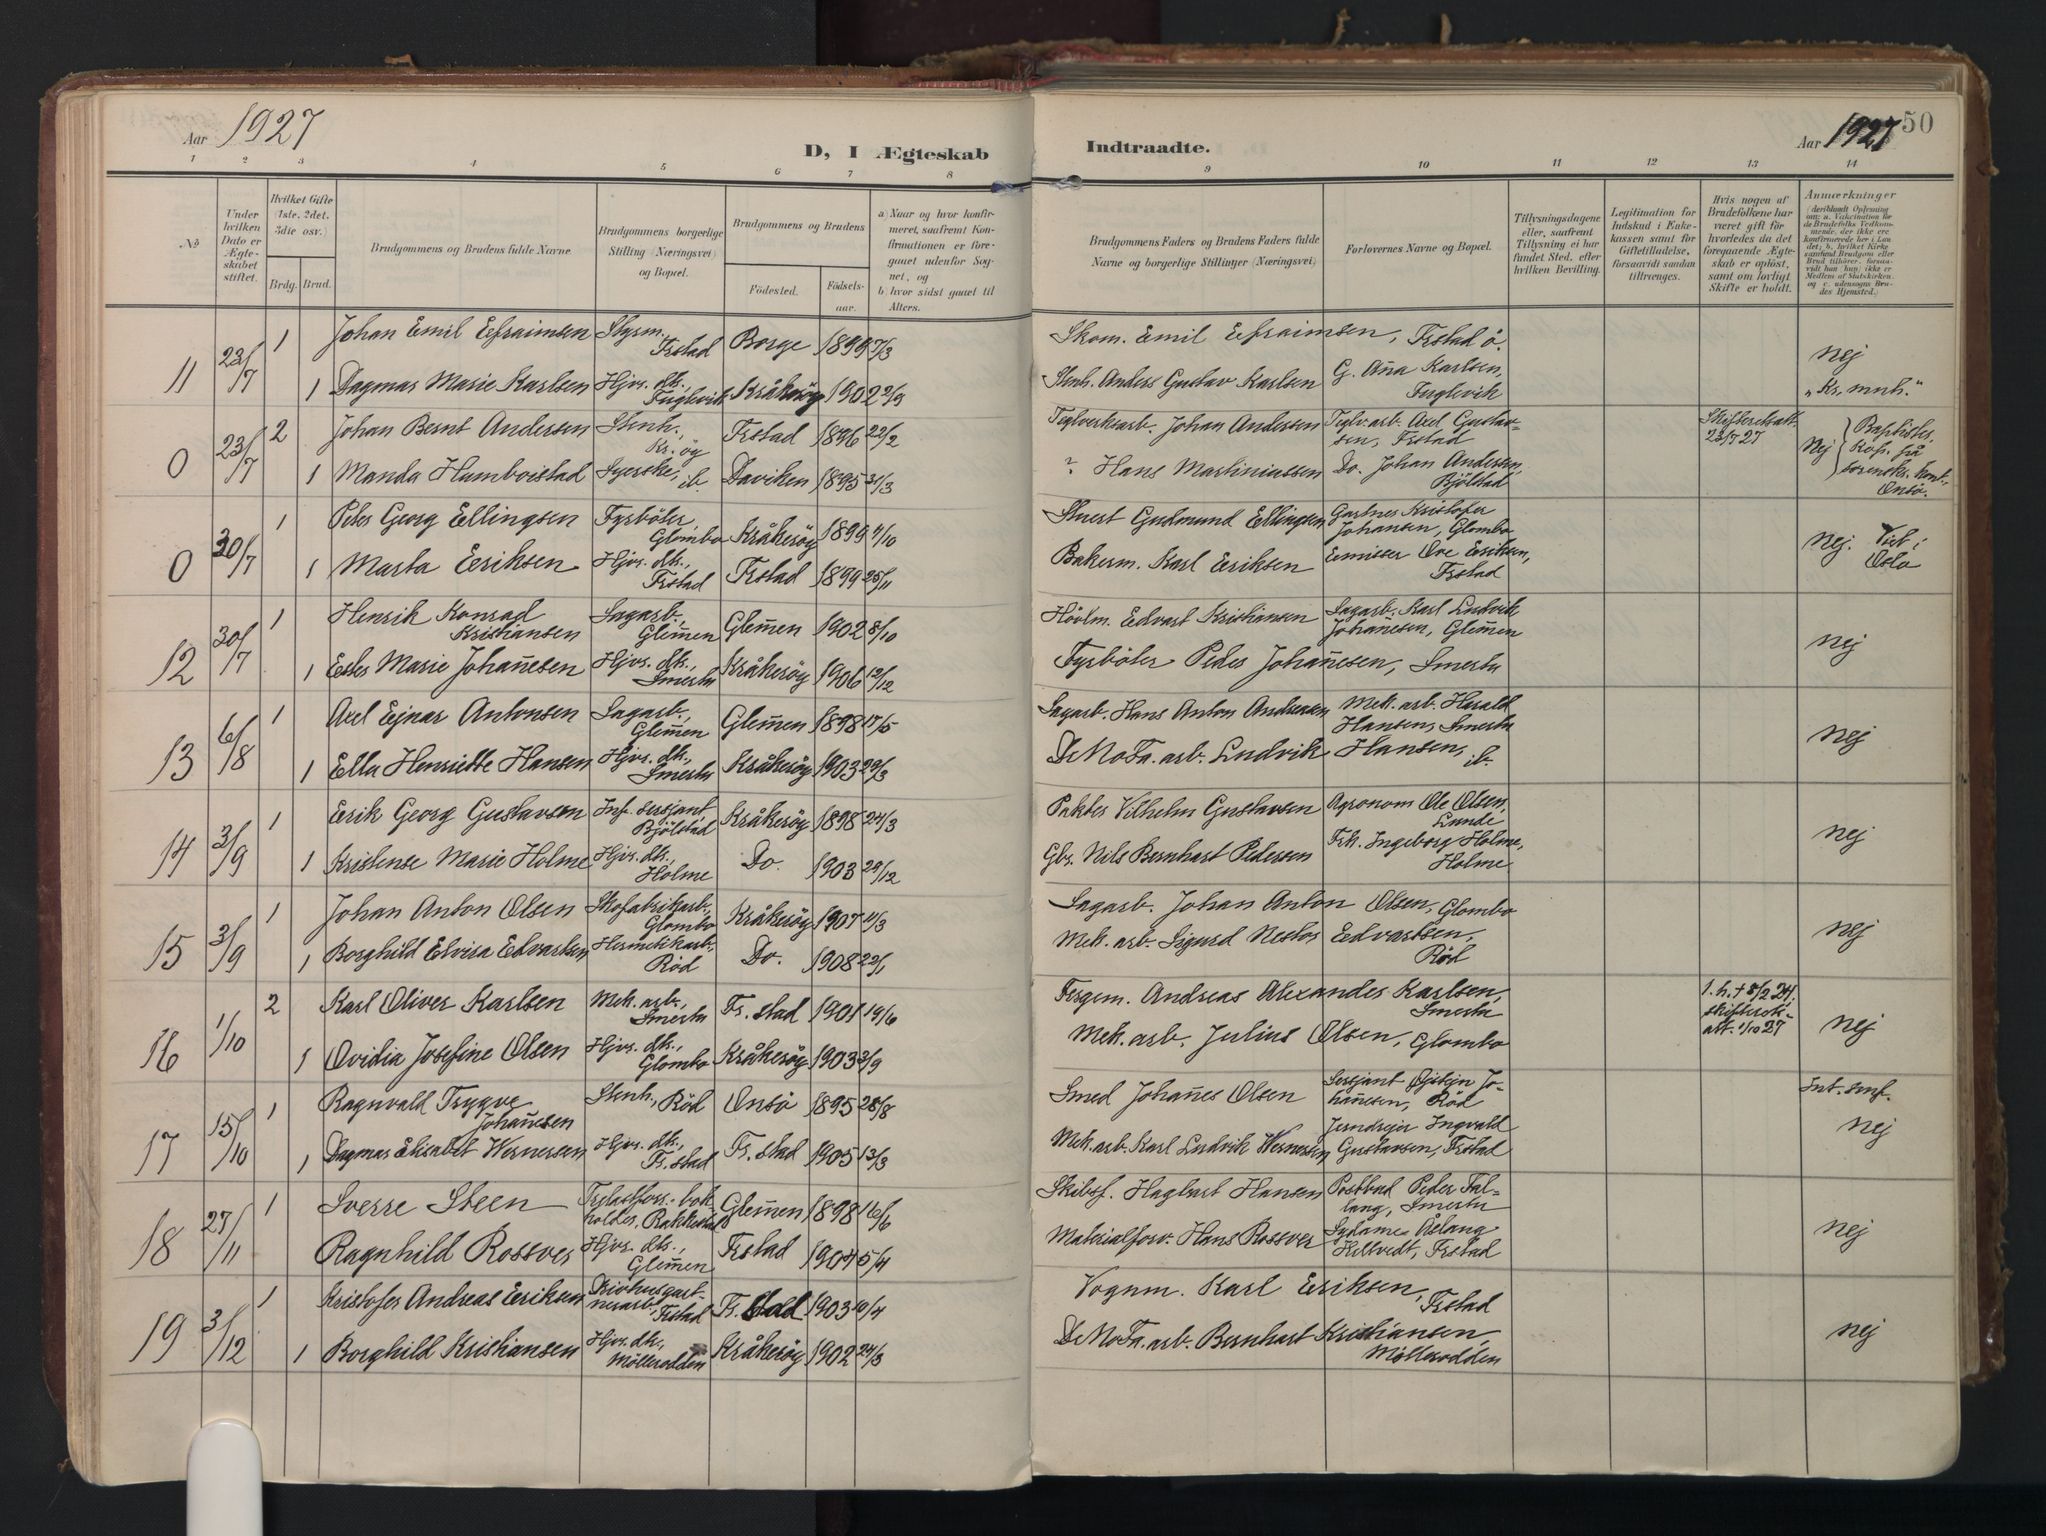 Aar 1927
D, I Ægteskab
Indtraadte.
Aar 1927
50
1 2 3 4 5 6 7 8 9 10 11 12 13 14
No
Under hvilken Dato er Ægteskabet stiftet.
Hvilket Gifte (1ste, 2det, 3die osv.)
Brdg. Brud.
Brudgommens og Brudens fulde Navne
Brudgommens borgerlige Stilling (Næringsvei) og Bopæl.
Brudgommens og Brudens
Fødested.
Fødselsaar.
a) Naar og hvor konfirmeret, saafremt Konfirmationen er foregaaet udenfor Sognet, og
b) hvor sidst gaaet til Alters.
Brudgommens Faders og Brudens Faders fulde Navne og borgerlige Stillinger (Næringsvei)
Forlovernes Navne og Bopæl.
Tillysningsdagene eller, saafremt Tillysning ei har fundet Sted, efter hvilken Bevilling.
Legitimation for Indskud i Enkekassen samt for Giftetilladelse, forsaavidt saadan tiltrænges.
Hvis nogen af Brudefolkene har været gift før hvorledes da det foregaaende Ægteskab er opløst, samt om lovligt Skifte er holdt.
Anmærkninger
11 23/7 1 Johan Emil Efraimsen Styrm. Frstad Borge 1899 7/3 Skom. Emil Efraimsen, Frstad ö. nej
1 Dagmar Marie Karlsen Hjvs. dtr., Fuglevik Kråkeröy 1902 2/9 Stenh. Anders Gustav Karlsen G. Anna Karlsen, Fuglevik "Kr. mnh."
0 23/7 2 Johan Bernt Andersen Stenh., Kr. öy Frstad 1896 22/2 Teglverksarb. Johan Andersen Teglv. arb. Axel Gustavsen, Frstad 23/7 27 Nej Baptister,
1 Manda Humborstad Syerske, ib. Daviken 1895 31/3 ? Hans Martiniussen Do. Johan Andersen, Bjölstad Onsö.
0 30/7 1 Peter Georg Ellingsen Fyrböter, Glombo Kråkeröy 1899 4/10 Stuert Gudmund Ellingsen Gartner Kristofer Johansen, Glombo nej. Viet i Oslo
1 Marta Eriksen Hjvs. dtr., Frstad Frstad 1899 25/11 Bakerm. Karl Eriksen Emissær Ove Eriksen, Frstad
12 30/7 1 Henrik Konrad Kristiansen Sagarb., Glem̄en Glem̄en 1902 8/10 Hövlm. Edvart Kristiansen Sagarb. Karl Ludvik Johan̄esen, Glem̄en nej
1 Ester Marie Johan̄esen Hjvs. dtr., Smertu Kråkeröy 1906 12/12 Fyrböter Peder Johan̄esen, Smertu
13 6/8 1 Axel Ejnar Antonsen Sagarb., Glem̄en Glem̄en 1898 17/5 Sagarb. Hans Anton Andersen Mek. arb. Harald Hansen, Smertu nej
1 Ella Henriette Hansen Hjvs. dtr., Smertu Kråkeröy 1903 29/3 De No Fa. arb. Ludvik Hansen, ib.
14 3/9 1 Erik Georg Gustavson Inf. sersjant Bjölstad Kråkeröy 1898 24/3 Pakter Vilhelm Gustavsen Agronom Ole Olsen, Lunde nej
1 Kristense Marie Holme Hjvs. dtr., Holme Do. 1903 29/12 Gbr. Nils Bernhart Pedersen Frk. Ingeborg Holme, Holme.
15 3/9 1 Johan Anton Olsen Skofabrikarb. Glombo Kråkeröy 1907 11/3 Sagarb. Johan Anton Olsen, Glombo nej
1 Borghild Elvira Edvartsen Hermetikarb. Röd Do. 1908 22/1 Mek. arb. Sigurd Nestor Edvartsen, Röd
16 1/10 2 Karl Oliver Karlsen Mek. arb., Smertu Fr. stad 1901 19/6 Fergem. Andreas Alexander Karlsen, Smertu 1. h. + 8/2 24, skifteratt. 1/10 27 nej
1 Ovidia Josefine Olsen Hjvs. dtr., Glombo Kråkeröy 1903 3/9 Mek. arb. Julius Olsen, Glombo
17 15/10 1 Ragnvald Trygve Johan̄esen Stenh., Röd Onsö 1895 28/8 Smed Johan̄es Olsen Sersjant Öistejn Johan̄esen, Röd Int. smf. nej
1 Dagmar Elisabet Wernersen Hjvs. dtr., Fr. stad Fr. stad 1905 13/3 Mek. arb. Karl Ludvik Wernersen Jerndrejer Ingvald Gustavsen, Frstad
18 27/11 1 Sverre Steen Trelastforr. bokholder, Rakkestad Glem̄en 1898 16/6 Skibsf. Hagbart Hansen Postbud Peder Fallang, Smertu nej
Ragnhild Rossver Hjvs. dtr., Glem̄en Frstad 1904 5/4 Materialforv. Hans Rossver Sydame Aslaug Hiltvedt, Frstad
19 3/12 1 Kristofer Andreas Eriksen Drivhusgartnerarb., Frstad Fr. stad 1903 10/4 Vognm. Karl Eriksen, Frstad nej
1 Borghild Kristiansen Hjvs. dtr., Möllerodden Kråkeröy 1902 24/3 De No Fa. arb. Bernhart Kristiansen, Möllerodden